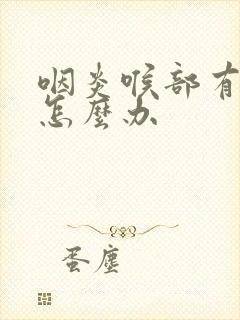 咽炎喉部有
怎麼办
蛋塵